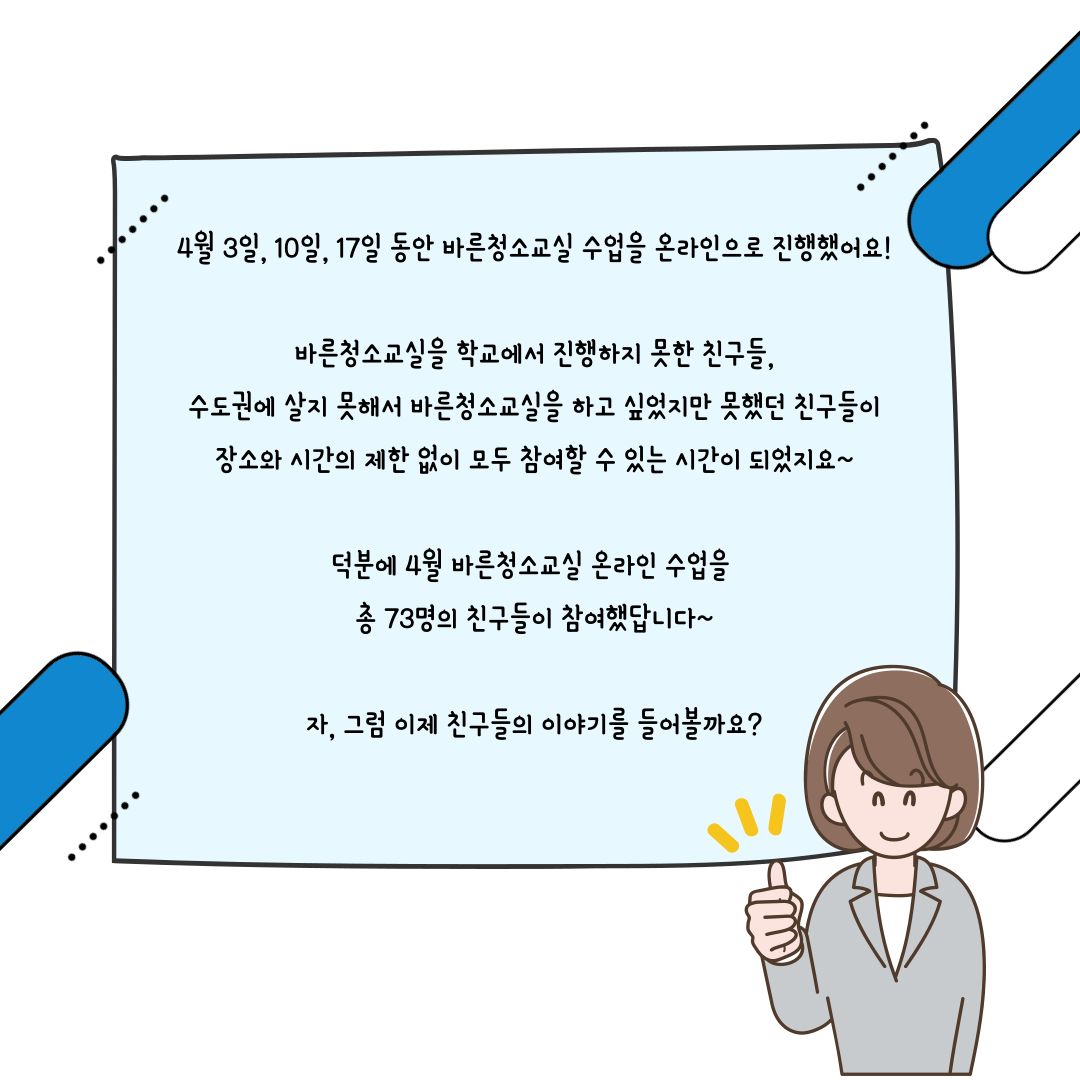 4월 3일, 10일, 17일 동안 바른청소교실 수업을 온라인으로 진행했어요!
바른청소교실을 학교에서 진행하지 못한 친구들,
수도권에 살지 못해서 바른청소교실을 하고 싶었지만 못했던 친구들이
장소와 시간의 제한 없이 모두 참여할 수 있는 시간이 되었지요~
덕분에 4월 바른청소교실 온라인 수업을
총 73명의 친구들이 참여했답니다~
자, 그럼 이제 친구들의 이야기를 들어볼까요?